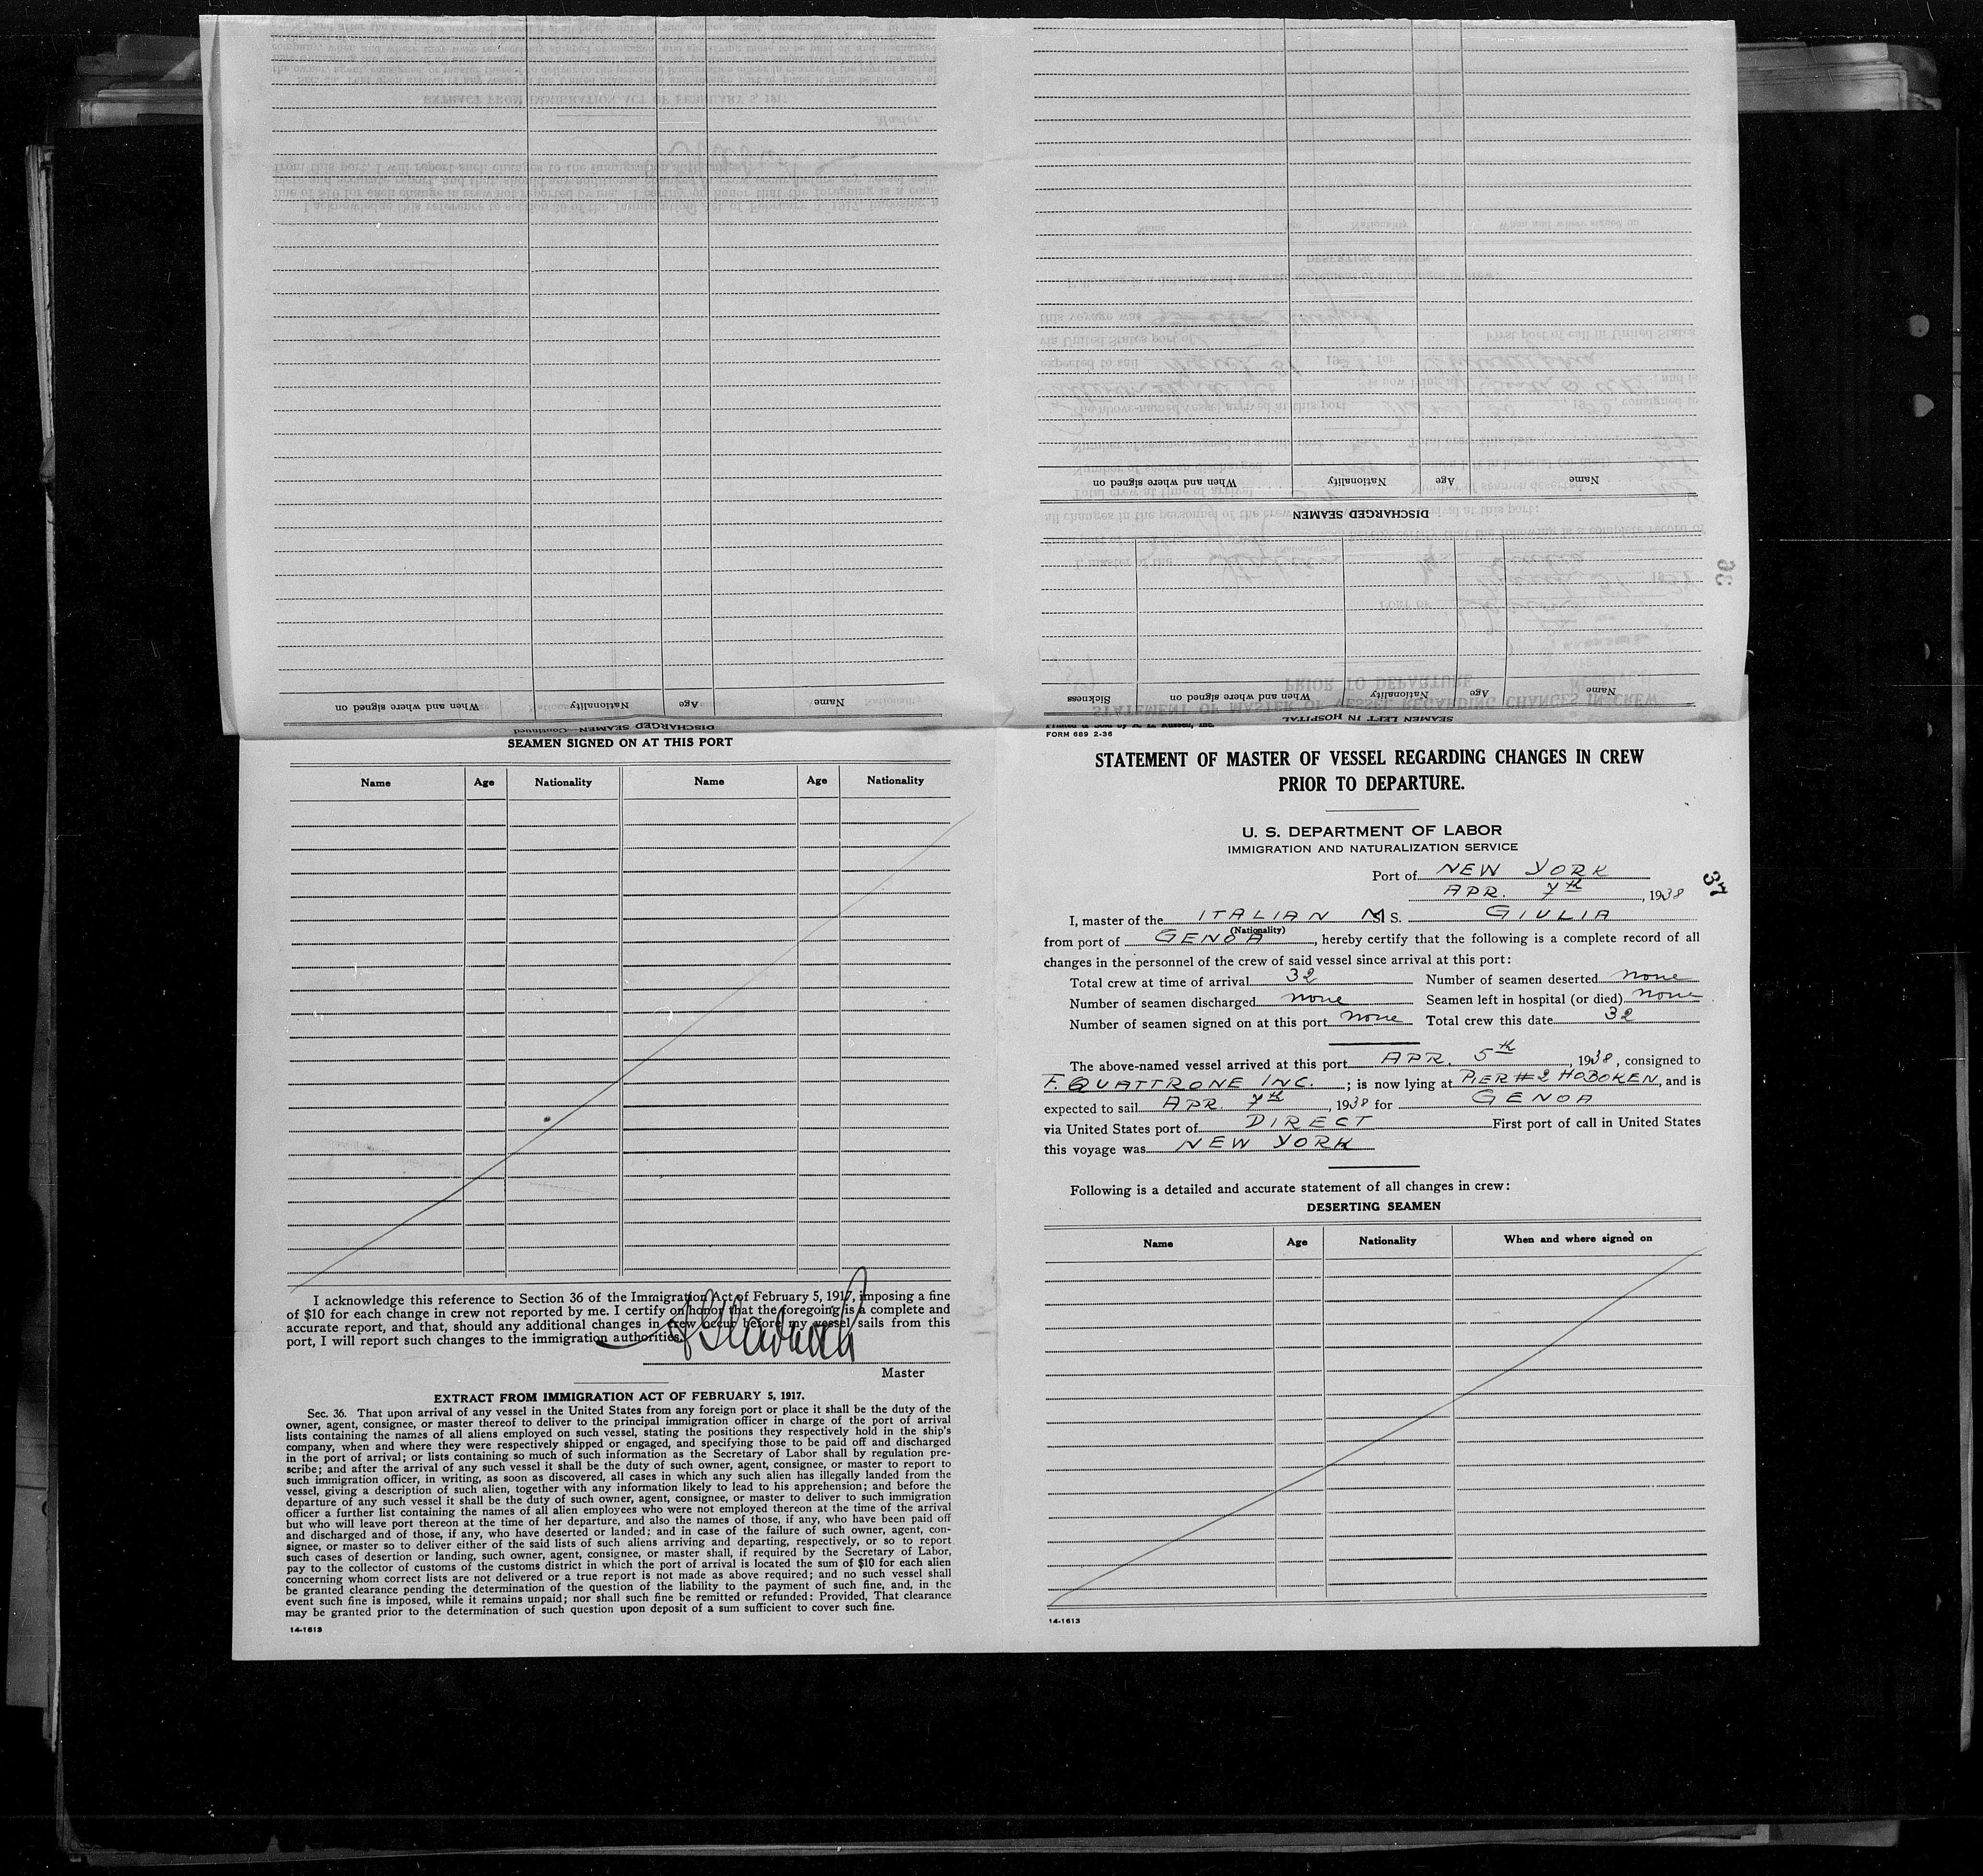 DISCHARGED SEAMEN—Continued
Name Age Nationality When and where signed on
DISCHARGED SEAMEN
Name Age Nationality When and where signed on
SEAMEN LEFT IN HOSPITAL
Name Age Nationality When and where signed on Sickness
36
SEAMEN SIGNED ON AT THIS PORT
Name Age Nationality Name Age Nationality
I acknowledge this reference to Section 36 of the Immigration Act of February 5, 1917, imposing a fine
of $10 for each change in crew not reported by me. I certify on honor that the foregoing is a complete and
accurate report, and that, should any additional changes in crew occur before my vessel sails from this
port, I will report such changes to the immigration authorities.
Master
EXTRACT FROM IMMIGRATION ACT OF FEBRUARY 5, 1917.
Sec. 36. That upon arrival of any vessel in the United States from any foreign port or place it shall be the duty of the
owner, agent, consignee, or master thereof to deliver to the principal immigration officer in charge of the port of arrival
lists containing the names of all aliens employed on such vessel, stating the positions they respectively hold in the ship's
company, when and where they were respectively shipped or engaged, and specifying those to be paid off and discharged
in the port of arrival; or lists containing so much of such information as the Secretary of Labor shall by regulation pre-
scribe; and after the arrival of any such vessel it shall be the duty of such owner, agent, consignee, or master to report to
such immigration officer, in writing, as soon as discovered, all cases in which any such alien has illegally landed from the
vessel, giving a description of such alien, together with any information likely to lead to his apprehension; and before the
departure of any such vessel it shall be the duty of such owner, agent, consignee, or master to deliver to such immigration
officer a further list containing the names of all alien employees who were not employed thereon at the time of the arrival
but who will leave port thereon at the time of her departure, and also the names of those, if any, who have been paid off
and discharged and of those, if any, who have deserted or landed; and in case of the failure of such owner, agent, con-
signee, or master so to deliver either of the said lists of such aliens arriving and departing, respectively, or so to report
such cases of desertion or landing, such owner, agent, consignee, or master shall, if required by the Secretary of Labor,
pay to the collector of customs of the customs district in which the port of arrival is located the sum of $10 for each alien
concerning whom correct lists are not delivered or a true report is not made as above required; and no such vessel shall
be granted clearance pending the determination of the question of the liability to the payment of such fine, and, in the
event such fine is imposed, while it remains unpaid; nor shall such fine be remitted or refunded: Provided, That clearance
may be granted prior to the determination of such question upon deposit of a sum sufficient to cover such fine.
14-1613
FORM 689 2-36
STATEMENT OF MASTER OF VESSEL REGARDING CHANGES IN CREW
PRIOR TO DEPARTURE.
U. S. DEPARTMENT OF LABOR
IMMIGRATION AND NATURALIZATION SERVICE
Port of NEW YORK
APR. 7th, 1938
37
I, master of the ITALIAN M S. GIULIA
(Nationality)
from port of GENOA, hereby certify that the following is a complete record of all
changes in the personnel of the crew of said vessel since arrival at this port:
Total crew at time of arrival 32 Number of seamen deserted none
Number of seamen discharged none Seamen left in hospital (or died) none
Number of seamen signed on at this port none Total crew this date 32
The above-named vessel arrived at this port APR. 5th, 1938, consigned to
F. QUATTRONE INC.; is now lying at PIER #2 HOBOKEN, and is
expected to sail APR. 7th, 1938 for GENOA
via United States port of DIRECT First port of call in United States
this voyage was NEW YORK
Following is a detailed and accurate statement of all changes in crew:
DESERTING SEAMEN
Name Age Nationality When and where signed on
14-1613